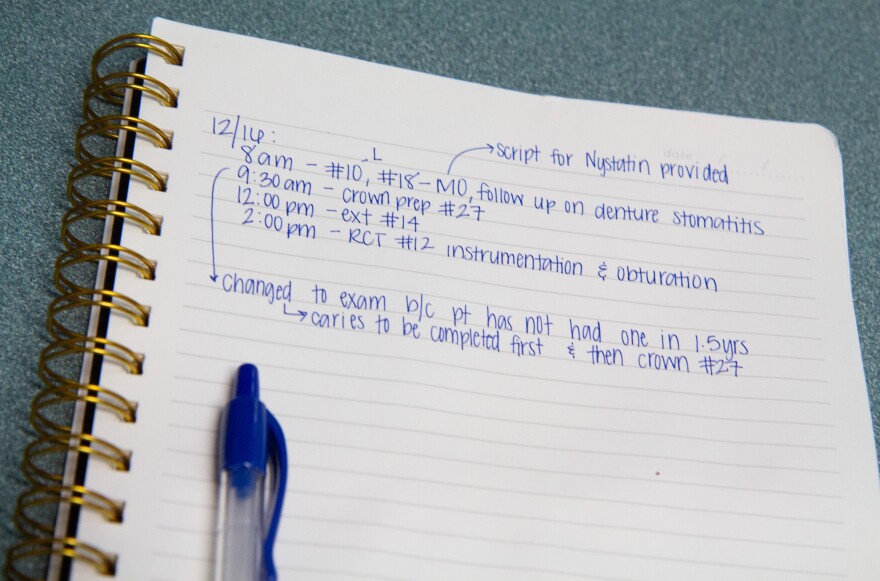 date / /
12/14:
script for Nystatin provided
8am - #10, L #18 - MO, follow up on denture stomatitis
9:30am - crown prep #27
12:00pm - ext #14
2:00pm - RCT #12 instrumentation & obturation
changed to exam b/c pt has not had one in 1.5yrs
caries to be completed first & then crown #27